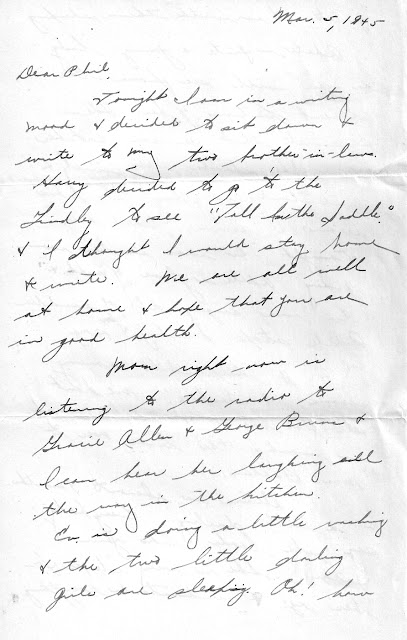 Mar. 5, 1945
Dear Phil,
Tonight I am in a writing
mood & decided to sit down &
write to my two brother-in-laws.
Harry decided to go to the
Lindley to see "Tall In the Saddle"
& I thought I would stay home
& write. We are all well
at home & hope that you are
in good health.
Mom right now is
listening to the radio to
Gracie Allen & George Burns &
I can hear her laughing all
the way in the kitchen.
Em is doing a little washing
& the two little darling
girls are sleeping. Oh! how